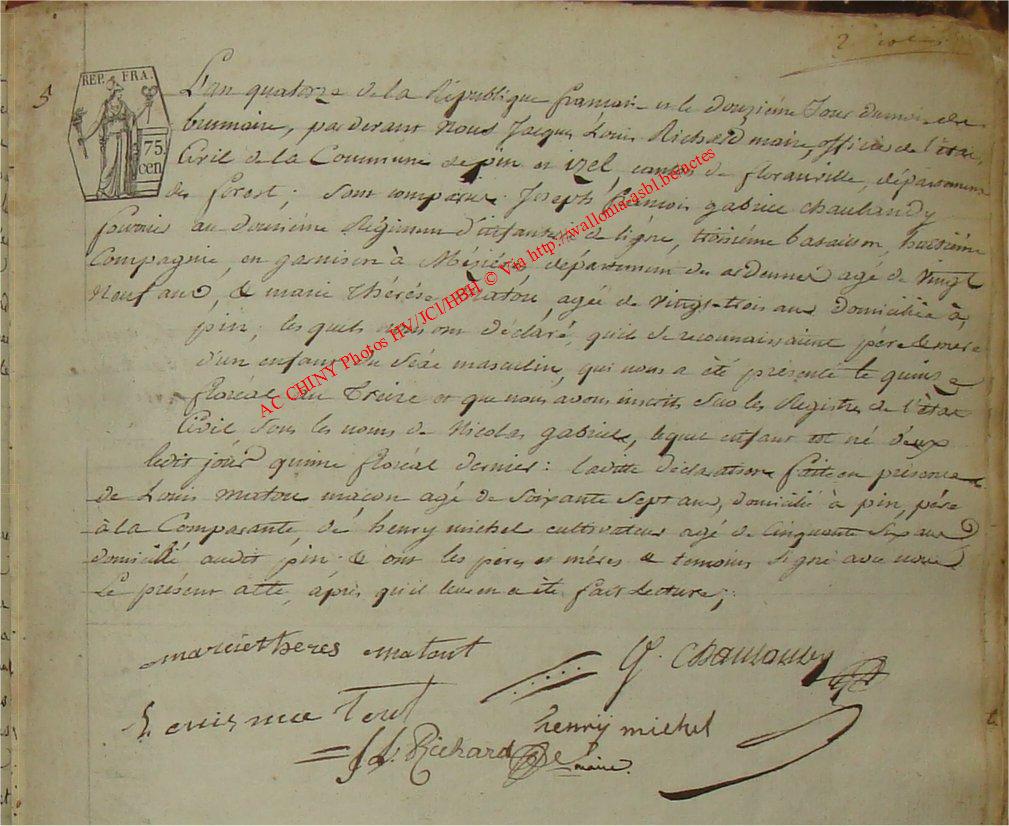 5
REP. FRA.
75.
cen
L'an quatorze de la République française et le douzième Jour du mois de
brumaire, pardevant nous Jacques Louis Richard maire, officier de l'état
Civil de la Commune de pin et izel, canton de florenville, département
des forest; sont comparus Joseph françois gabriel
fourier au douzième Régiment d'infanterie de ligne, troisième bataillon, huitième
Compagnie, en garnison à Mézières département des ardennes agé de vingt
neuf ans, & marie thérése Matou, agée de vingt-trois ans domiciliée à
pin; les quels nous ont déclaré, qu'il se reconnaissaient père & mère
d'un enfant du Séxe masculin, qui nous a été présenté le quinze
floréal an Treize et que nous avons inscrit sur les Registres de l'état
Civil sous les noms de Nicolas gabriel, lequel enfant est né d'eux
ledit jour quinze floréal dernier: laditte déclaration faite en présence
de Louis matou macon agé de soixante sept ans, domicilié à pin, père
à la Comparante, de henry michel cultivateur agé de cinquante six ans
domicilié audit pin & ont les pères et mères & temoins signé avec nous
Le présent acte, après qu'il leur en a été fait Lecture;
AC CHINY Photos HV/JCl/HBH © Via http://wallonia-asbl.be/actes
marietheres matout
G.
henrij michel
J L. Richard
maire.